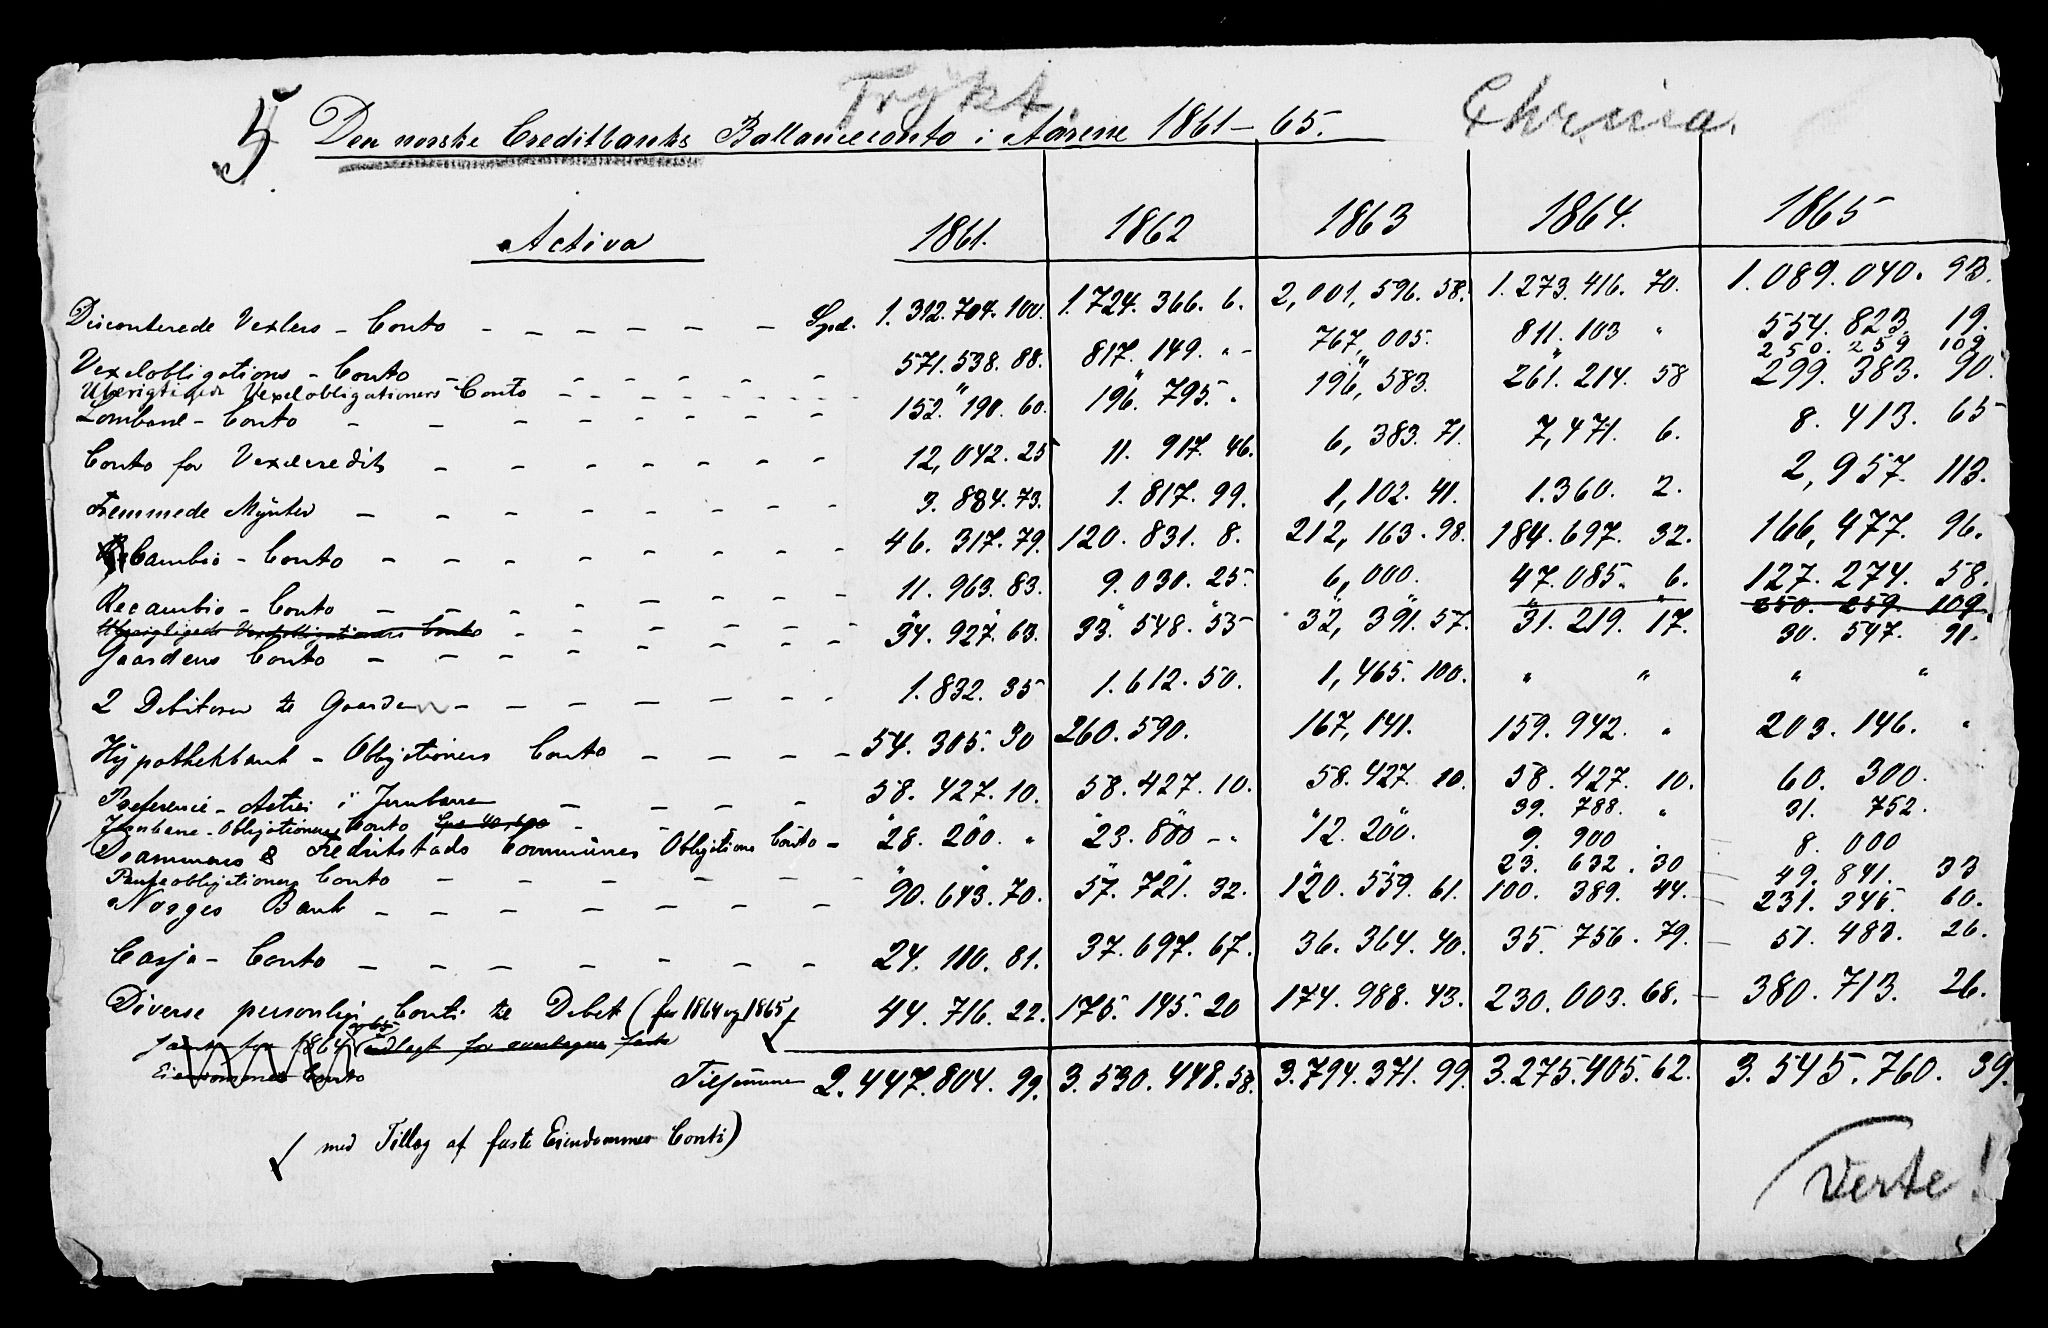 Trykt.
Chrinia.
5 Den norske Creditbanks Ballanceconto i Aarene 1861–65.
Activa 1861. 1862 1863 1864. 1865
Disconterede Vexlers – Conto – – – – – – Spd. 1.312.704.100. 1.724.366. 6. 2,001,596.58. 1.273.416.70. 1.089.040.93.
Vexelobligations – Conto – – – – – – 571.538.88. 817.149. " – 767,005. 811.103 " 554.823. 19.
Uberigtigede Vexelobligationers Conto – – – – – – " " " " 250.259 109
Lombard – Conto – – – – – – 152.190.60. 196.795. " 196,583. 261.214.58 299.383.90.
Conto for Vexelcredits – – – – – – 12,042.25 11.917.46. 6,383.71. 7,471. 6. 8.413.65
Fremmede Mynter – – – – – – 3.884.73. 1.817.99. 1,102.41. 1.360. 2. 2,957.113.
Cambio – Conto – – – – – – 46.317.79. 120.831. 8. 212,163.98. 184.697.32. 166,477.96.
Recambio – Conto – – – – – – 11.963.83. 9.030.25. 6,000. 47.085. 6. 127.274.58.
Uberigtigede Vexelobligationers Conto – – – – – – " " " " " " " " 250.259.109.
Gaardens Conto – – – – – – 34.927.63. 33.548.55 32,391.57. 31.219.17. 30.547.91.
2 Debitorer te Gaarden – – – – – – 1.832.35 1.612.50. 1,465.100. " " " "
Hypothekbank – Obligationers Conto – – – – 54.305.30 260.590. 167,141. 159.942. " 203.146. "
Preference – Actier i Jernbanen – – – – 58.427.10. 58.427.10. 58.427.10. 58.427.10. 60.300.
Jernbane – Obligationers Conto – – " " " " 39.788. " 31.752.
Drammens & Fredrikstads Communes Obligations Conto – 28.200. " 23.800 – " 12.200. 9.900 . 8.000
Panteobligationers Conto – – – – – – " " " " " " 23.632.30 49.841.33
Norges Bank – – – – – – 90.643.70. 57.721.32. 120.559.61. 100.389.44. 231.345.60.
Cassa – Conto – – – – – – 24.110.81. 37.697.67. 36.364.40. 35.756.79. 51.483.26.
Diverse personlige Conti te Debet (for 1864 og 1865 44.716.22. 175.145.20 174.988.43. 230.003.68. 380.713.26.
Eiendommes Conto
Tilsammen 2.447.804.99. 3.530.448.58. 3.794.371.99. 3.275.405.62. 3.545.760.39.
med Tillæg af faste Eiendommes Conti)
Verte!